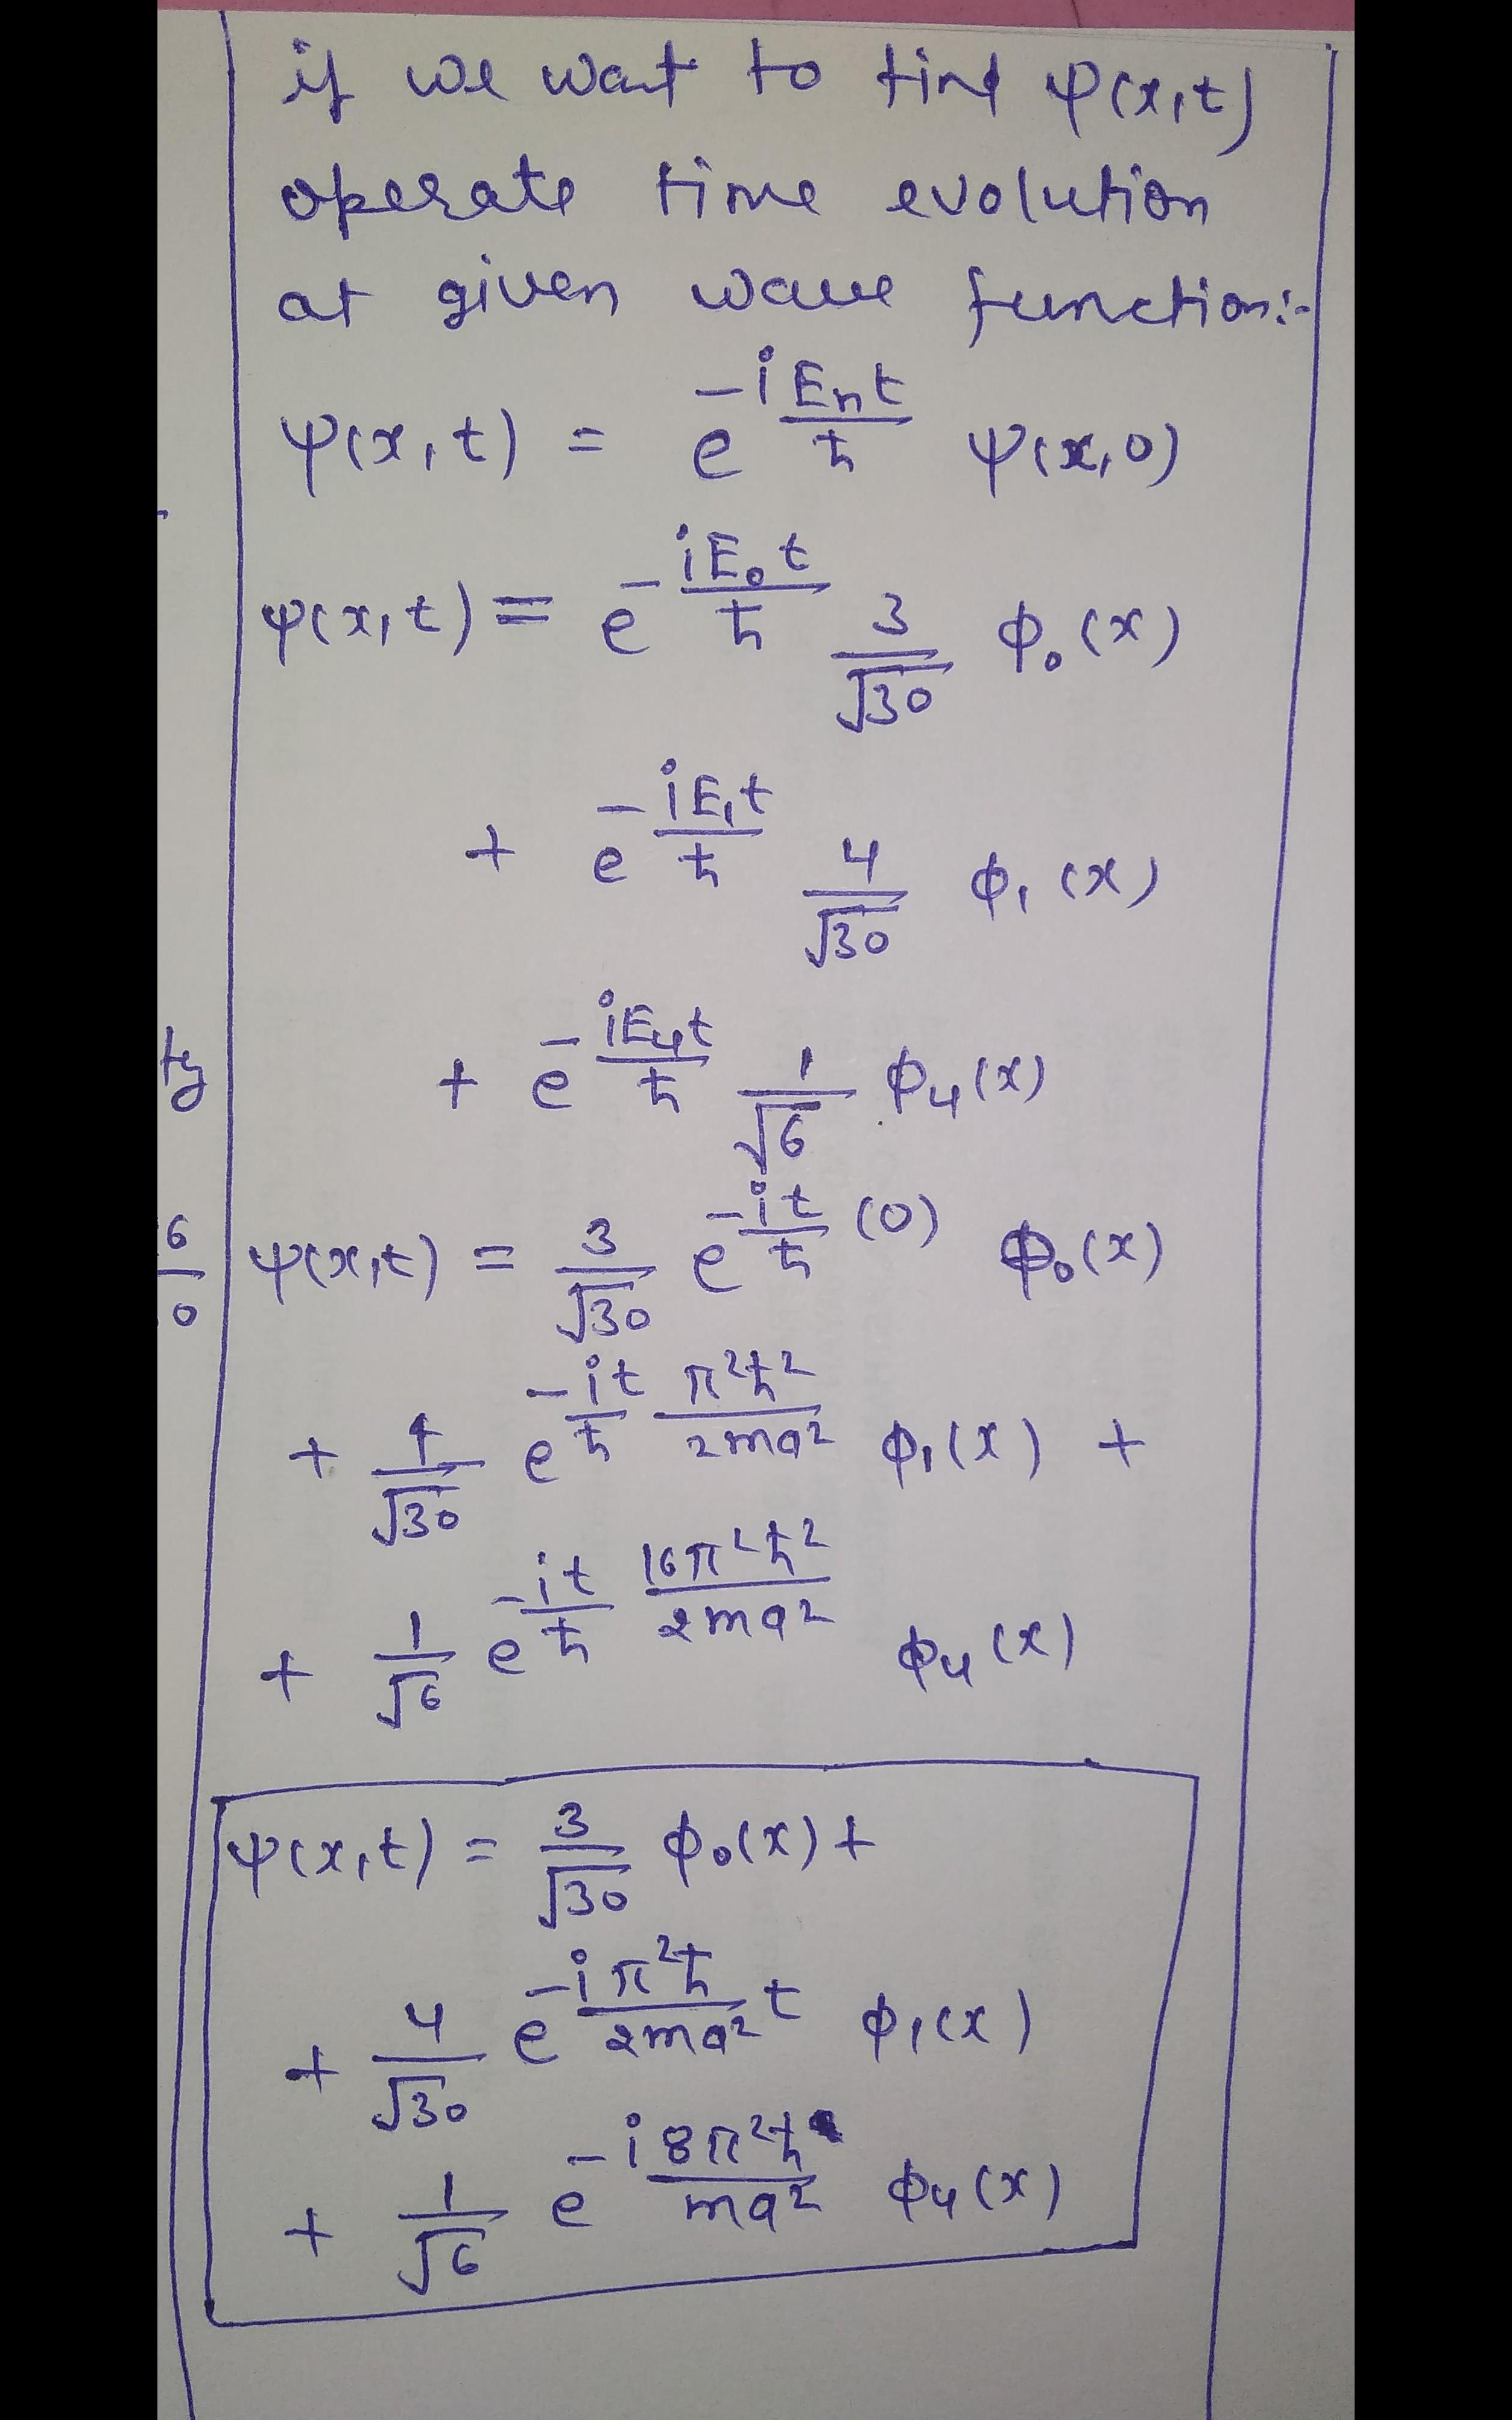 if we want to find ψ(x,t)
operate time evolution
at given wave function:-
ψ(x,t) = e^{-i\frac{E_n t}{ħ}} ψ(x,0)
ψ(x,t) = e^{-\frac{iE_0 t}{ħ}} \frac{3}{\sqrt{30}} ϕ_0(x)
+ e^{-\frac{iE_1 t}{ħ}} \frac{4}{\sqrt{30}} ϕ_1(x)
+ e^{-\frac{iE_4 t}{ħ}} \frac{1}{\sqrt{6}} ϕ_4(x)
ty
\frac{6}{0}
ψ(x,t) = \frac{3}{\sqrt{30}} e^{-\frac{it}{ħ}(0)} ϕ_0(x)
+ \frac{4}{\sqrt{30}} e^{-\frac{it}{ħ} \frac{π^2ħ^2}{2ma^2}} ϕ_1(x) +
+ \frac{1}{\sqrt{6}} e^{-\frac{it}{ħ} \frac{16π^2ħ^2}{2ma^2}} ϕ_4(x)
ψ(x,t) = \frac{3}{\sqrt{30}} ϕ_0(x) +
+ \frac{4}{\sqrt{30}} e^{-i\frac{π^2ħ}{2ma^2}t} ϕ_1(x)
+ \frac{1}{\sqrt{6}} e^{-i\frac{8π^2ħ}{ma^2}} ϕ_4(x)